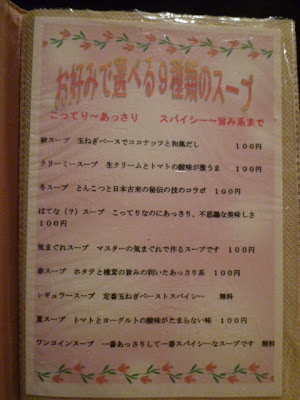 お好みで選べる9種類のスープ
こってり～あっさり　スパイシー～旨み系まで
秋スープ　玉ねぎベースでココナッツと和風だし　100円
クリーミースープ　生クリームとトマトの酸味が激うま　100円
冬スープ　とんこつと日本古来の秘伝の技のコラボ　100円
はてな（?）スープ　こってりなのにあっさり、不思議な美味しさ
100円
気まぐれスープ　マスターの気まぐれで作るスープです　100円
春スープ　ホタテと椎茸の旨みの利いたあっさり系　100円
レギュラースープ　定番玉ねぎベーストスパイシー　無料
夏スープ　トマトとヨーグルトの酸味がたまらない味　100円
ワンコインスープ　一番あっさりして一番スパイシーなスープです　無料